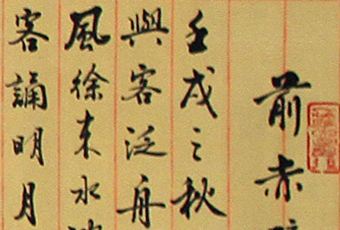 前赤
壬戌之秋
與客泛舟
風徐来水
客誦明月